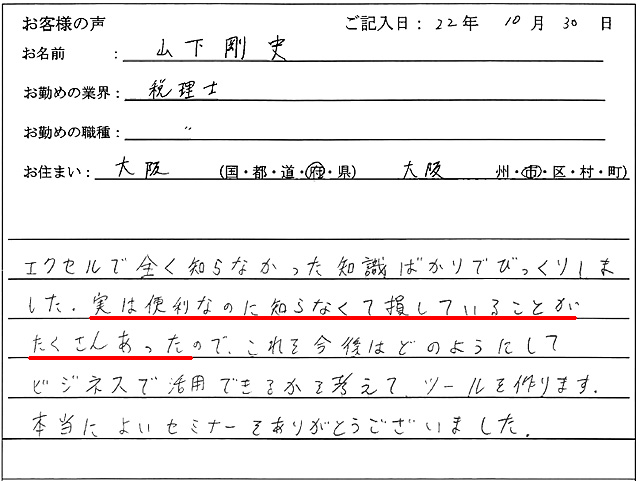 お客様の声 ご記入日：22年 10月 30日
お名前 ： 山下剛史
お勤めの業界： 税理士
お勤めの職種： 〃
お住まい： 大阪 (国・都・道・府・県) 大阪 州・市・区・村・町)
エクセルで全く知らなかった知識ばかりでびっくりしま
した．実は便利なのに知らなくて損していることが
たくさんあったので、これを今後はどのようにして
ビジネスで活用できるかを考えて、ツールを作ります．
本当によいセミナーをありがとうございました．